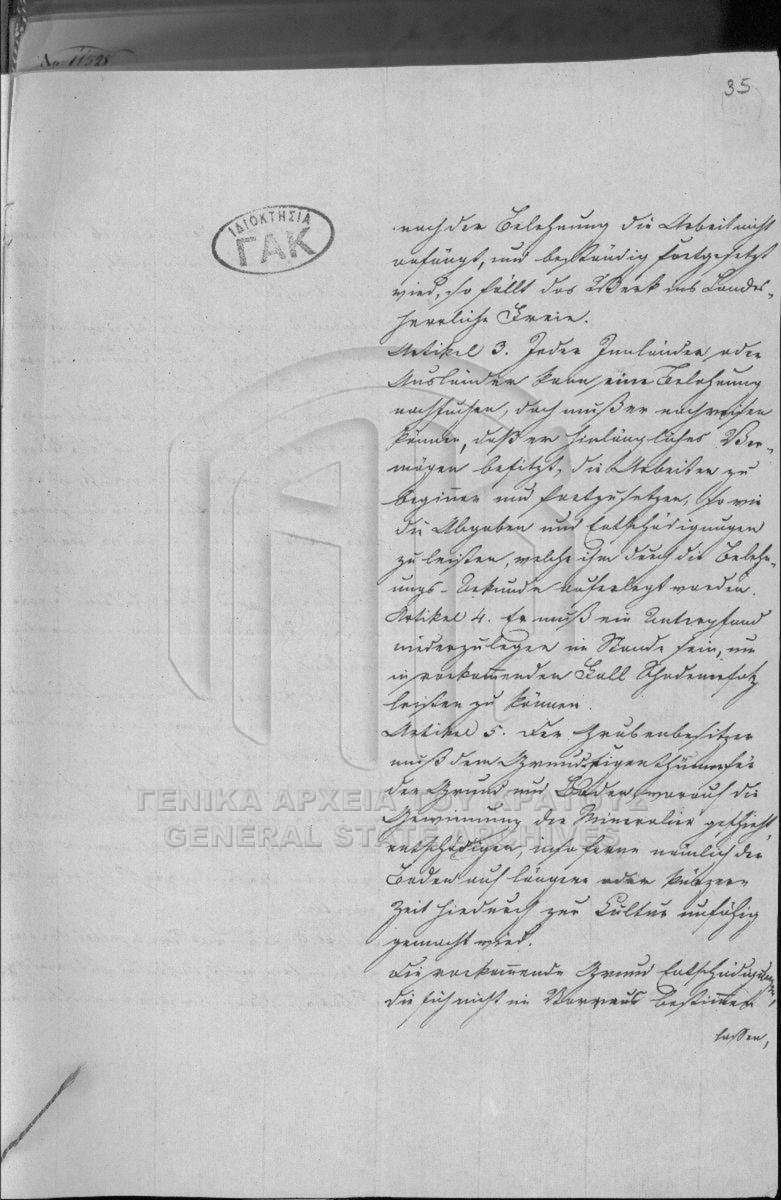 No 11528
35
ΙΔΙΟΚΤΗΣΙΑ
ΓΑΚ
nach der Belehnung die Arbeit nicht
anfängt, und beständig fortgesetzt
wird, so fällt das Werk ins Landes-
herrliche Freie.
Artikel 3. Jeder Innländer oder
Ausländer kann eine Belehnung
nachsuchen, doch muß er nachweisen
können, daß er hinlängliches Ver-
mögen besitzt, die Arbeiten zu
beginnen und fortzusetzen, so wie
die Abgaben und Entschädigungen
zu leisten, welche ihm durch die Beleh-
nungs-Urkunde auferlegt werden.
Artikel 4. Er muß ein Unterpfand
niederzulegen im Stande sein, um
in vorkommenden Fall Schadenersatz
leisten zu können.
Artikel 5. Der Grubenbesitzer
muß dem Grundeigenthümer für
den Grund und Boden worauf die
Gewinnung der Mineralien geschieht,
entschädigen, insoferne nämlich der
Boden auf längere oder kürzere
Zeit hiedurch zur Cultur unfähig
gemacht wird.
Die vorkommende Grund Entschädigungen,
die sich nicht im Vorraus bestimmen
lassen,
ΓΕΝΙΚΑ ΑΡΧΕΙΑ ΤΟΥ ΚΡΑΤΟΥΣ
GENERAL STATE ARCHIVES